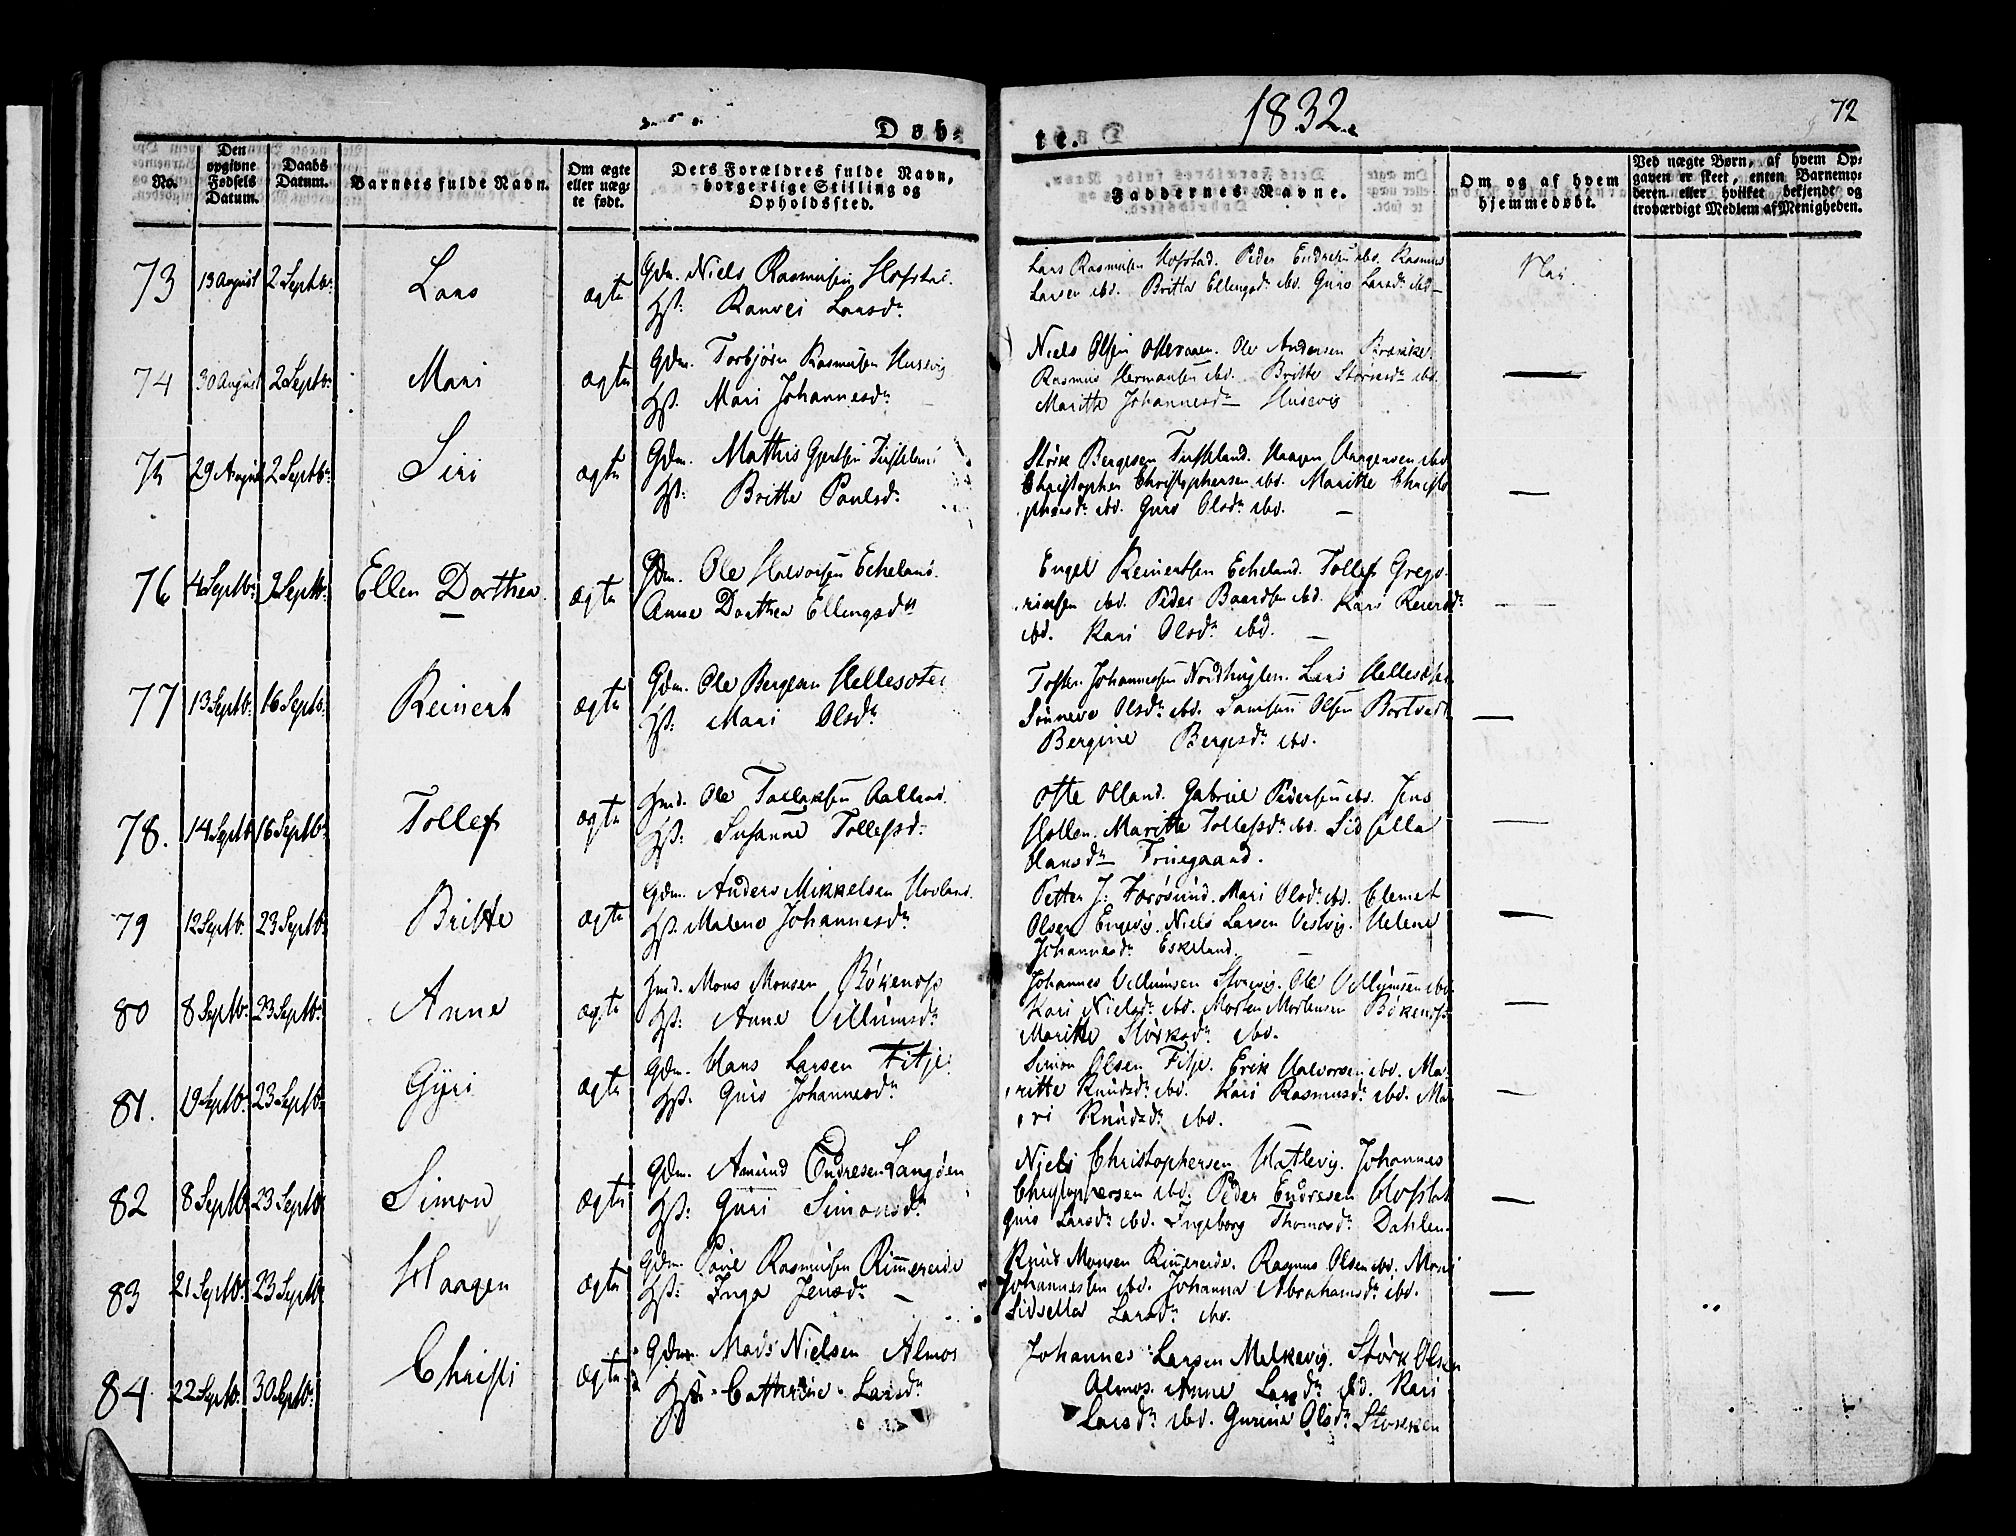 Døb-
te.
1832.
72
No.
Den opgivne Fødsels Datum.
Daabs Datum.
Barnets fulde Navn.
Om ægte eller uæg-te født.
Dets Forældres fulde Navn, borgerlige Stilling og Opholdssted.
Faddernes Navne.
Om og af hvem hjemmedøbt.
Ved uægte Børn, af hvem Op-gaven er skeet, enten Barnemo-deren eller hvilket bekjendt og troværdigt Medlem af Menigheden.
73 13 August 2 Septbr. Lars ægte
Gdm. Niels Rasmusen Hofstad.
Hst. Ranvei Larsdr.
Lars Rasmusen Hofstad. Peder Endresen ibd. Rasmus
Larsen ibd. Britte Ellingsdr. ibd. Guro Larsdr. ibd —
Nei.
74 30 August 2 Septbr. Mari ægte
Gdm. Torbjørn Rasmusen Husevig
Hst. Mari Johannesdr.
Niels Olsen Ole Andersen
Rasmus Hermansen ibd. Britte Størksdr. ibd.
Maritte Johannesdr. Husevig
—
75 29 August 2 Septbr. Siri ægte
Gdm. Mathis Gjertsen
Hst: Britte Paulsdr.
Størk Bergesen Haagen Aagesen ibd
Christopher Christophersen ibd. Maritte Christo
phersdr. ibd. Guro Olsdr. ibd. —
—
76 4 Septbr. 2 Septbr. Ellen Dorthea ægte
Gdm. Ole Halvorsen Echeland.
Anne Dorthea Ellingsdtr
Engel Reinertsen Echeland. Tollef Grego-
riusen ibd. Peder Baardsen ibd. Kari Reiersdr.
ibd. Kari Olsdr. ibd. —
—
77 13 Septbr. 16 Septbr. Reinert ægte
Gdm. Ole Bergesen Hellesøter
Hst: Mari Olsdr.
Tosten Johannessen Nordhuglen. Lars
Sønneve Olsdr. ibd. Samson Olsen Bortvedt
Bergine Bergesdr. ibd.
—
78. 14 Septbr 16 Septbr. Tollef ægte
Hmd. Ole Tollaksen Aalland.
Hst: Susanne Tollefsdr.
Otte Olland. Gabriel Pedersen ibd. Jens
Hollen. Maritte Tollefsdr. ibd. Sidsella
Hansdr.
—
79 12 Septbr. 23 Septbr. Britte ægte
Gdm. Anders Mikkelsen Hovland.
Hst. Malene Johannesdr.
Petter J: Færøsund. Mari Olsdr. ibd. Clemet
Olsen Engevig. Niels Larsen Vestvig. Helene
Johannesdr. Eskeland. —
—
80 8 Septbr. 23 Septbr. Anne ægte
Hmd. Mons Monsen Bökenæss
Hst: Anne Villumsdr.
Johannes Villumsen Storvig. Ole Villumsen ibd.
Kari Nielsdr. ibd. Morten Mortensen Bökenæss
Maritte Størksdr. ibd.
—
81. 19 Septbr. 23 Septbr. Gyri ægte
Gdm. Hans Larsen Fitje.
Hst. Guro Johannesdr.
Simon Olsen Fitje. Erik Halvorsen ibd. Ma-
ritte Knudsdr. ibd. Kari Rasmusdr. ibd. Ma
ri Knudsdr. ibd.
—
82 8 Septbr. 23 Septbr Simon ægte
Gdm. Amund Endresen Langøen
Hst: Guri Simonsdr.
Niels Christophersen Hatlevig. Johannes
Christophersen ibd. Peder Endresen Hofstad
Guro Larsdr. ibd. Ingeborg Thomasdr. Dahlen.
—
83 21 Septbr. 23 Septbr. Haagen ægte
Gdm. Poul Rasmusen Rimmereide
Hst: Inga Jensdr. —
Knud Monsen Rimmereide. Rasmus Olsen ibd. Mons
Johannessen ibd. Johanna Abrahamsdr. ibd.
Sidsella Larsdr. ibd.
—
84. 22 Septbr. 30 Septbr. Christi ægte
Gdm. Mads Nielsen Almos
Hst: Cathrine Larsdr.
Johannes Larsen Melkevig. Størk Olsen
Almos. Anne Larsdr. ibd. Kari
Larsdr. ibd. Gurine Olsdr. Stokken